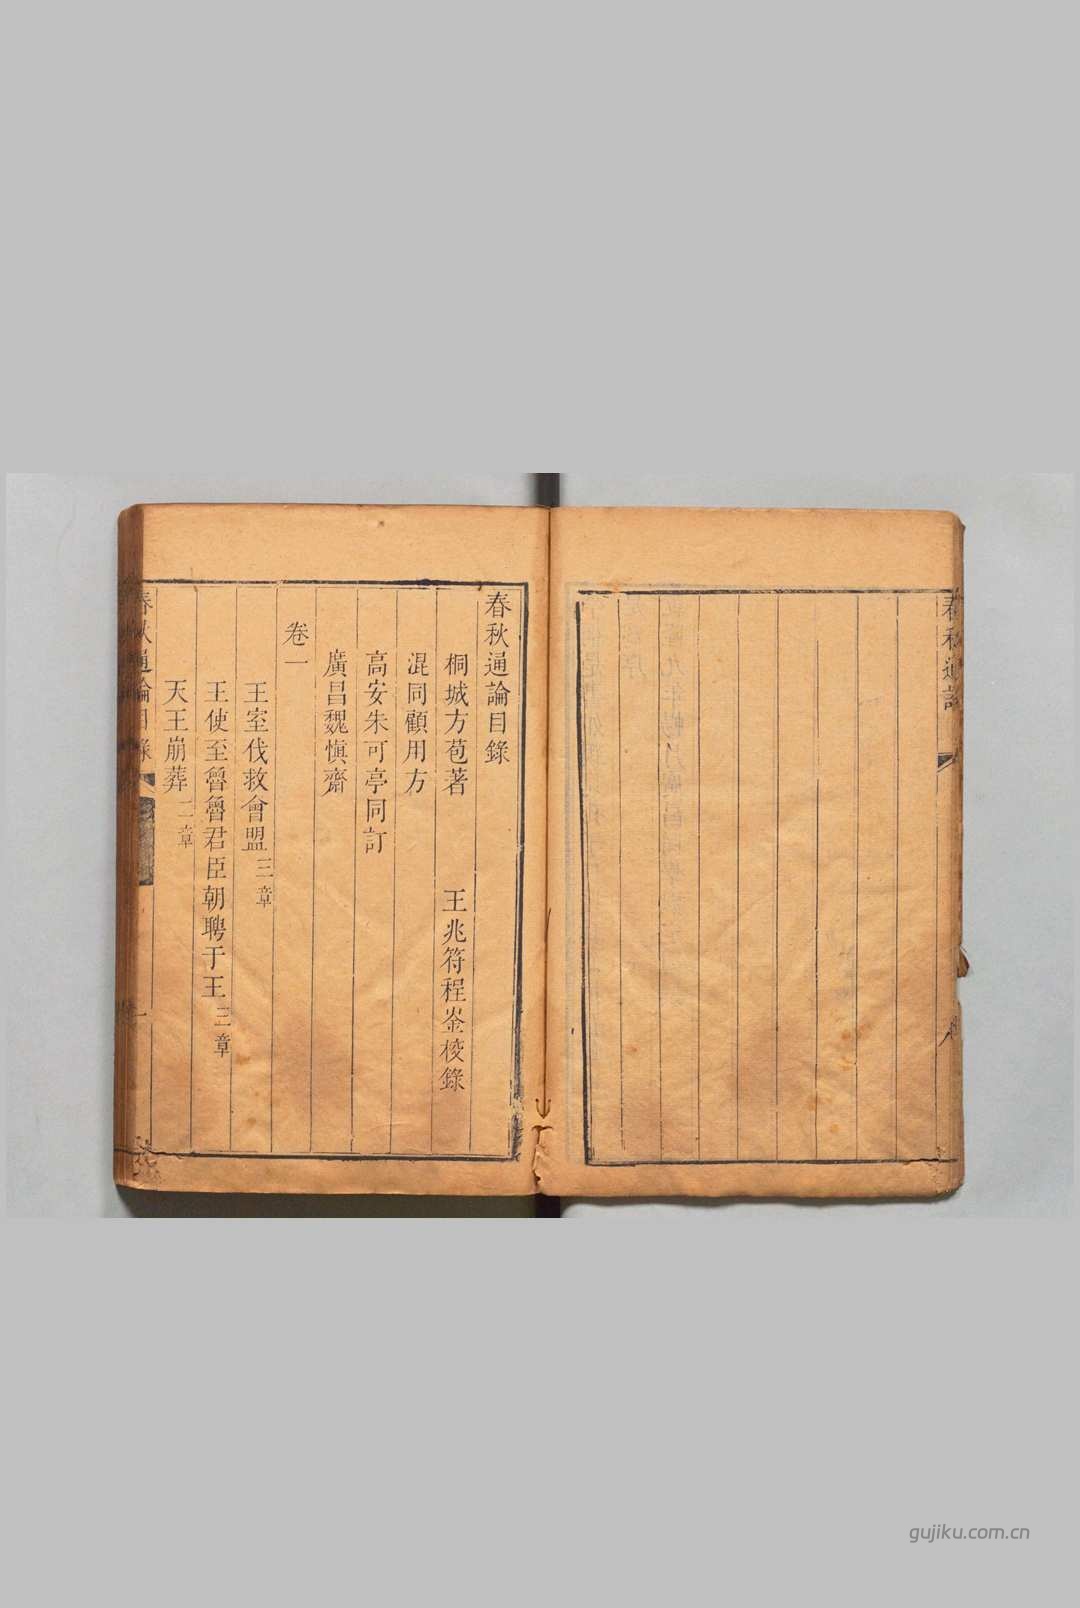 春秋通論目錄
桐城方苞著 王兆符程崟校錄
混同顧用方
高安朱可亭同訂
廣昌魏慎齋
卷一
王室伐救會盟三章
王使至魯魯君臣朝聘于王三章
天王崩葬二章
春秋通論目錄
一
春秋通論
gujiku.com.cn